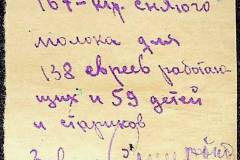 164 - лтр. снятого
молока для
138 евреев работаю-
щих и 59 детей
и стариков